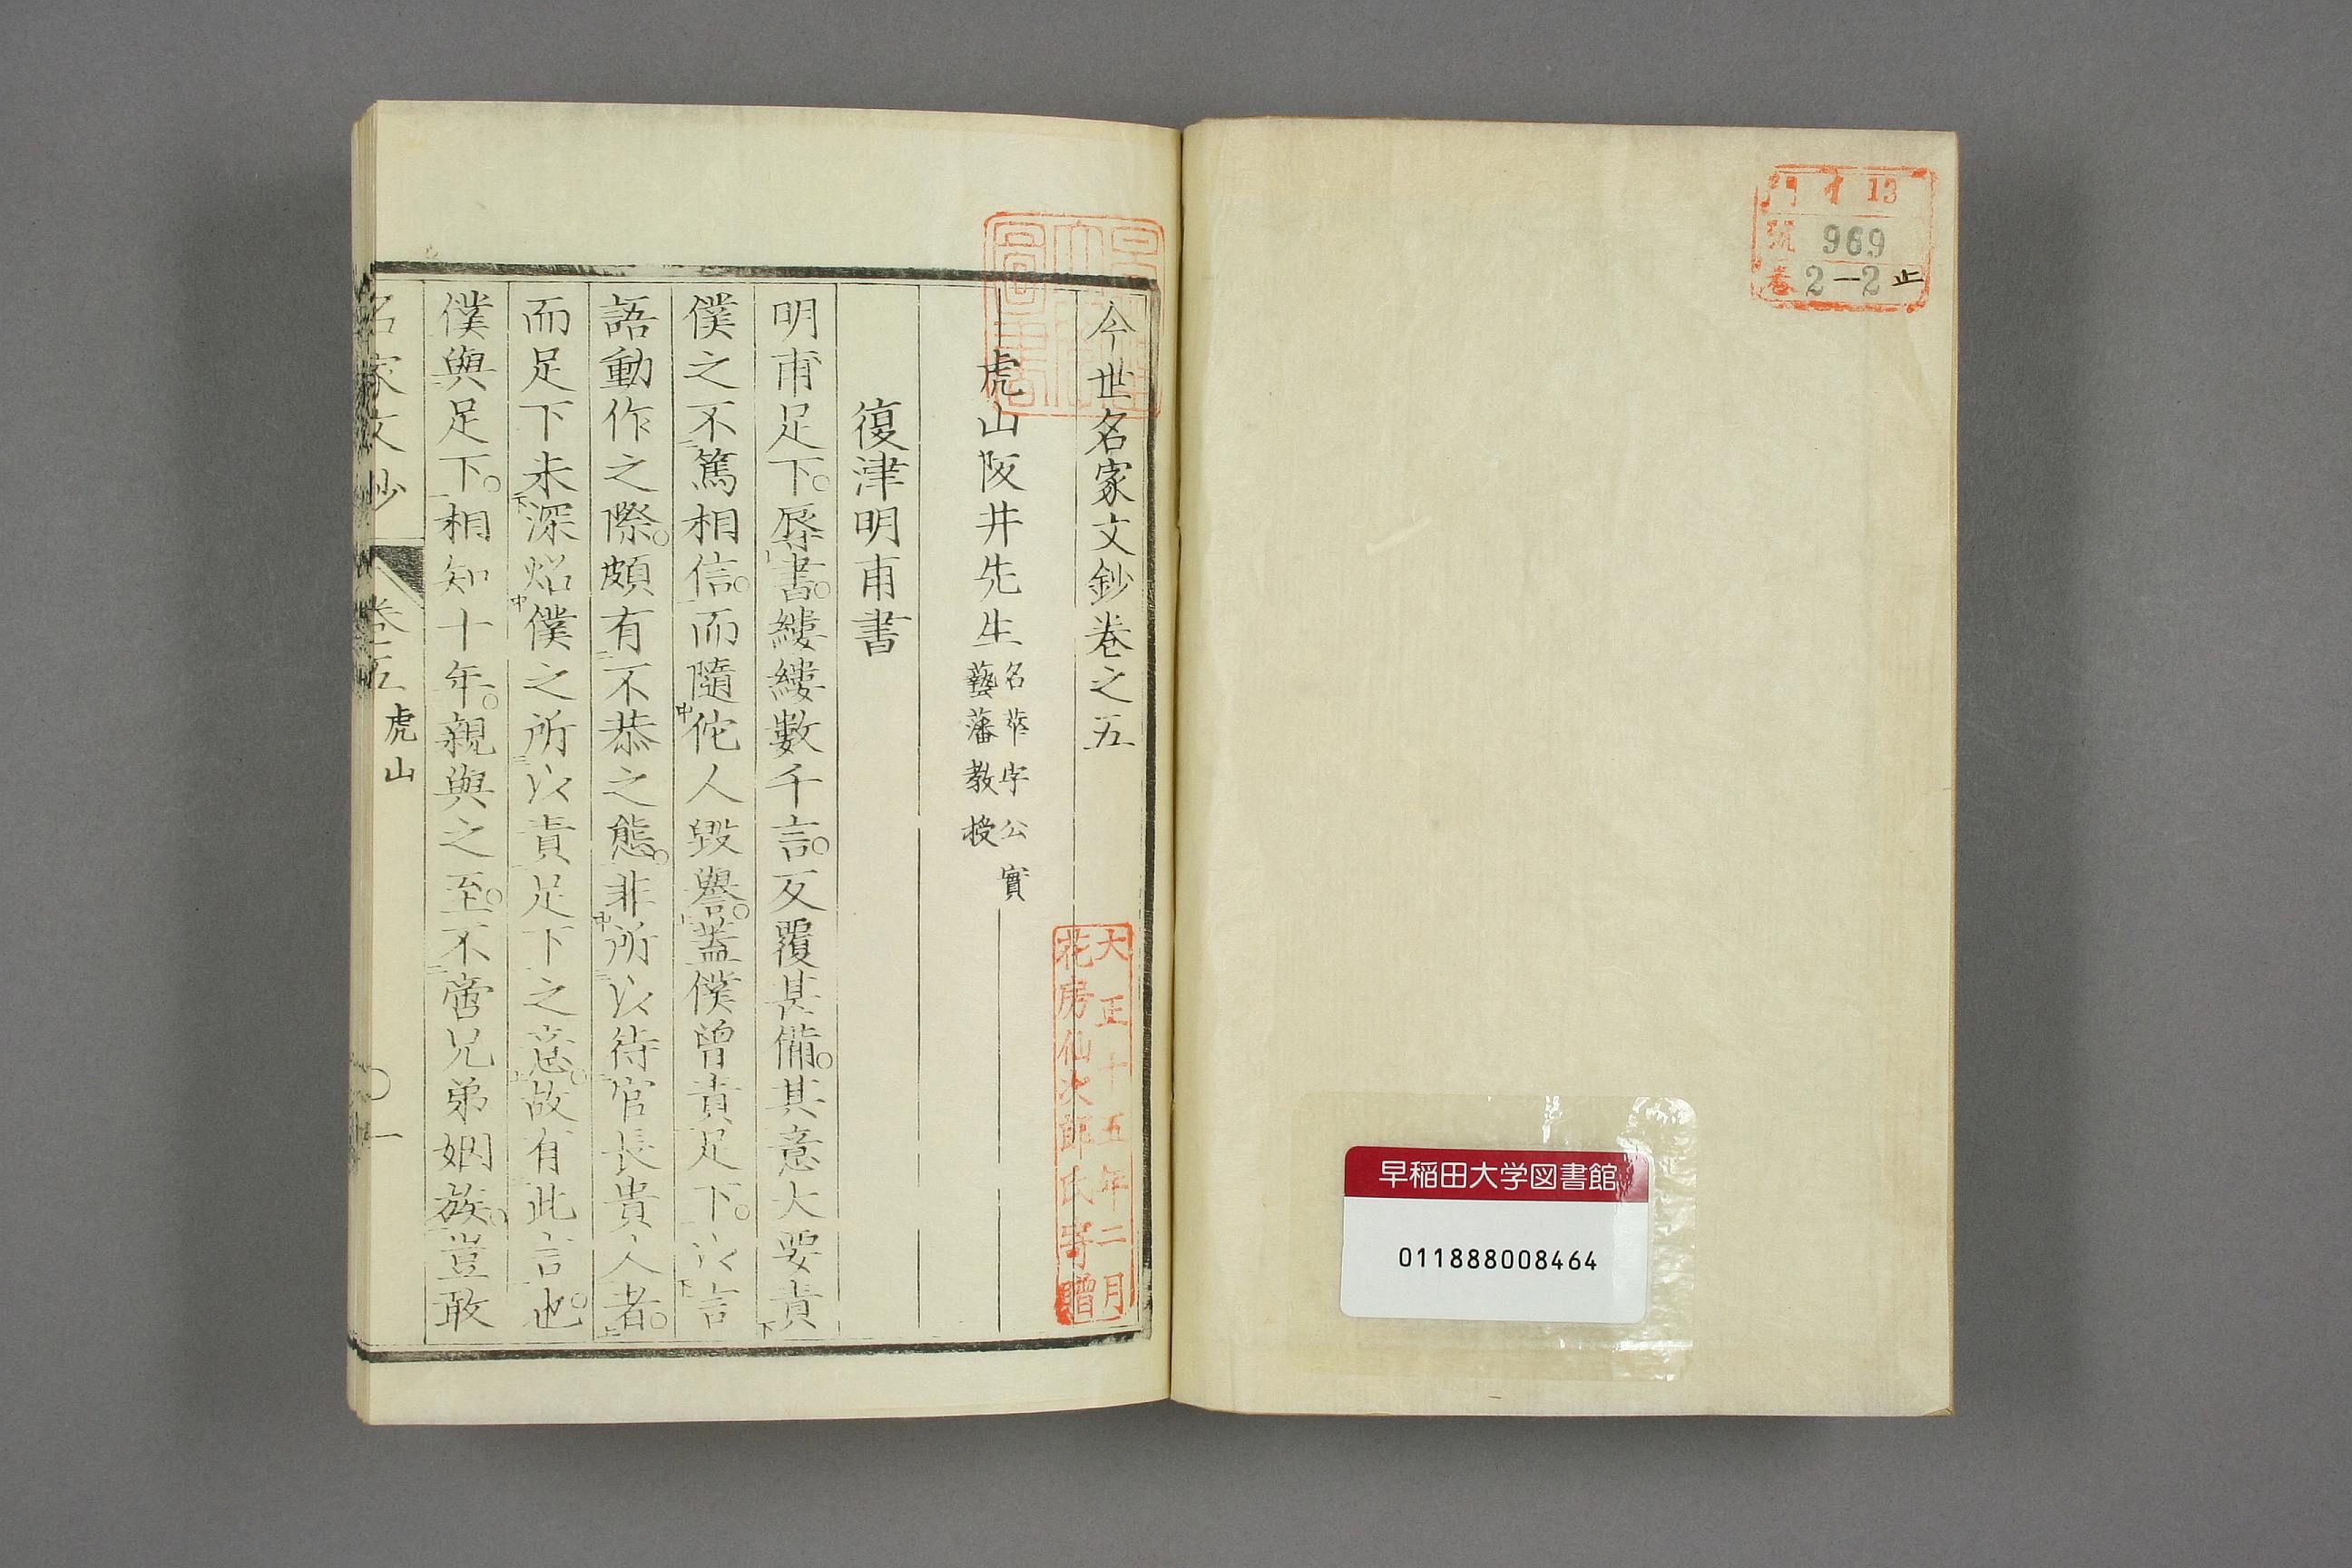 門 イ 13
號 969
巻 2-2 止
早稲田大学図書館
011888008464
今世名家文鈔卷之五
大正十五年二月
花房仙次郎氏寄贈
虎山阪井先生
名華字公實
藝藩教授
復津明甫書
明甫足下。辱書。縷縷數千言。反覆甚備。其意大要責
僕之不篤相信。而隨佗人毀譽。蓋僕曾責足下。以言
語動作之際。頗有不恭之態。非所以待官長貴人者。
而足下未深炤僕之所以責足下之意。故有此言也。
僕與足下。相知十年。親與之至。不啻兄弟姻族。豈敢
名家文鈔 卷五 虎山 一